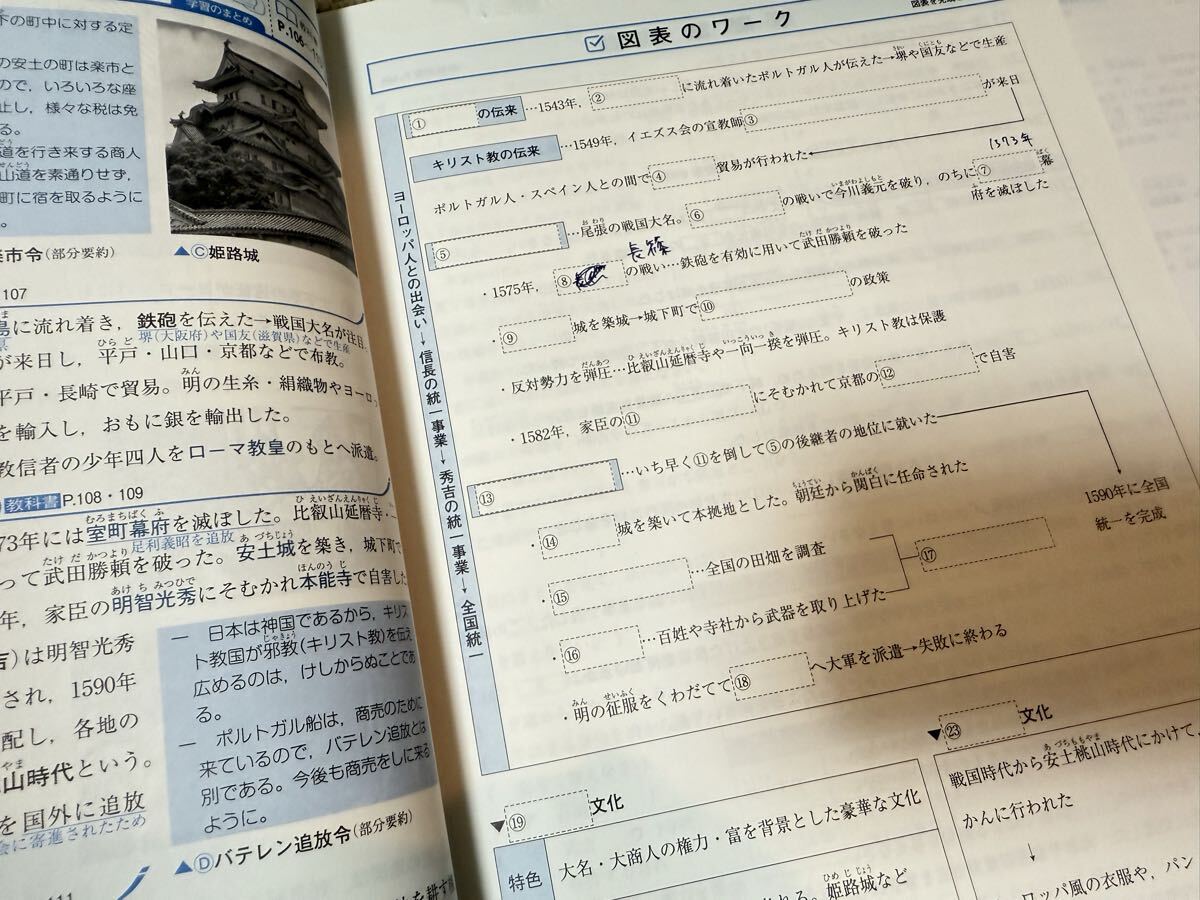 学習のまとめ
P.106
下の町中に対する定
の安土の町は楽市と
ので，いろいろな座
止し，様々な税は免
る。
道を行き来する商人
山道を素通りせず，
町に宿を取るように
。
楽市令(部分要約)
▲Ⓒ姫路城
107
島に流れ着き，鉄砲を伝えた→戦国大名が注目。
堺(大阪府)や国友(滋賀県)などで生産
が来日し，平戸・山口・京都などで布教。
平戸・長崎で貿易。明の生糸・絹織物やヨーロッ
を輸入し，おもに銀を輸出した。
教信者の少年四人をローマ教皇のもとへ派遣。
教科書 P.108・109
73年には室町幕府を滅ぼした。比叡山延暦寺・
足利義昭を追放
って武田勝頼を破った。安土城を築き，城下町で
年，家臣の明智光秀にそむかれ本能寺で自害した
吉)は明智光秀
され，1590年
配し，各地の
山時代という。
を国外に追放
会に寄進されたため
一 日本は神国であるから，キリス
ト教国が邪教(キリスト教)を伝え
広めるのは，けしからぬことであ
る。
一 ポルトガル船は，商売のために
来ているので，バテレン追放とは
別である。今後も商売をしに来る
ように。
▲Ⓓバテレン追放令(部分要約)
111
図表のワーク
ヨーロッパ人との出会い→信長の統一事業→秀吉の統一事業→全国統一
①の伝来…1543年，②に流れ着いたポルトガル人が伝えた→堺や国友などで生産
キリスト教の伝来…1549年，イエズス会の宣教師③が来日
ポルトガル人・スペイン人との間で④貿易が行われた
1573年
⑤…尾張の戦国大名。⑥の戦いで今川義元を破り，のちに⑦幕
府を滅ぼした
長篠
・1575年，⑧の戦い…鉄砲を有効に用いて武田勝頼を破った
・⑨城を築城→城下町で⑩の政策
・反対勢力を弾圧…比叡山延暦寺や一向一揆を弾圧。キリスト教は保護
・1582年，家臣の⑪にそむかれて京都の⑫で自害
⑬…いち早く⑪を倒して⑤の後継者の地位に就いた
・⑭城を築いて本拠地とした。朝廷から関白に任命された
1590年に全国
統一を完成
・⑮…全国の田畑を調査
⑰
・⑯…百姓や寺社から武器を取り上げた
・明の征服をくわだてて⑱へ大軍を派遣→失敗に終わる
▼⑲文化
特色
大名・大商人の権力・富を背景とした豪華な文化
姫路城など
▼㉓文化
戦国時代から安土桃山時代にかけて，
かんに行われた
↓
ロッパ風の衣服や，パン